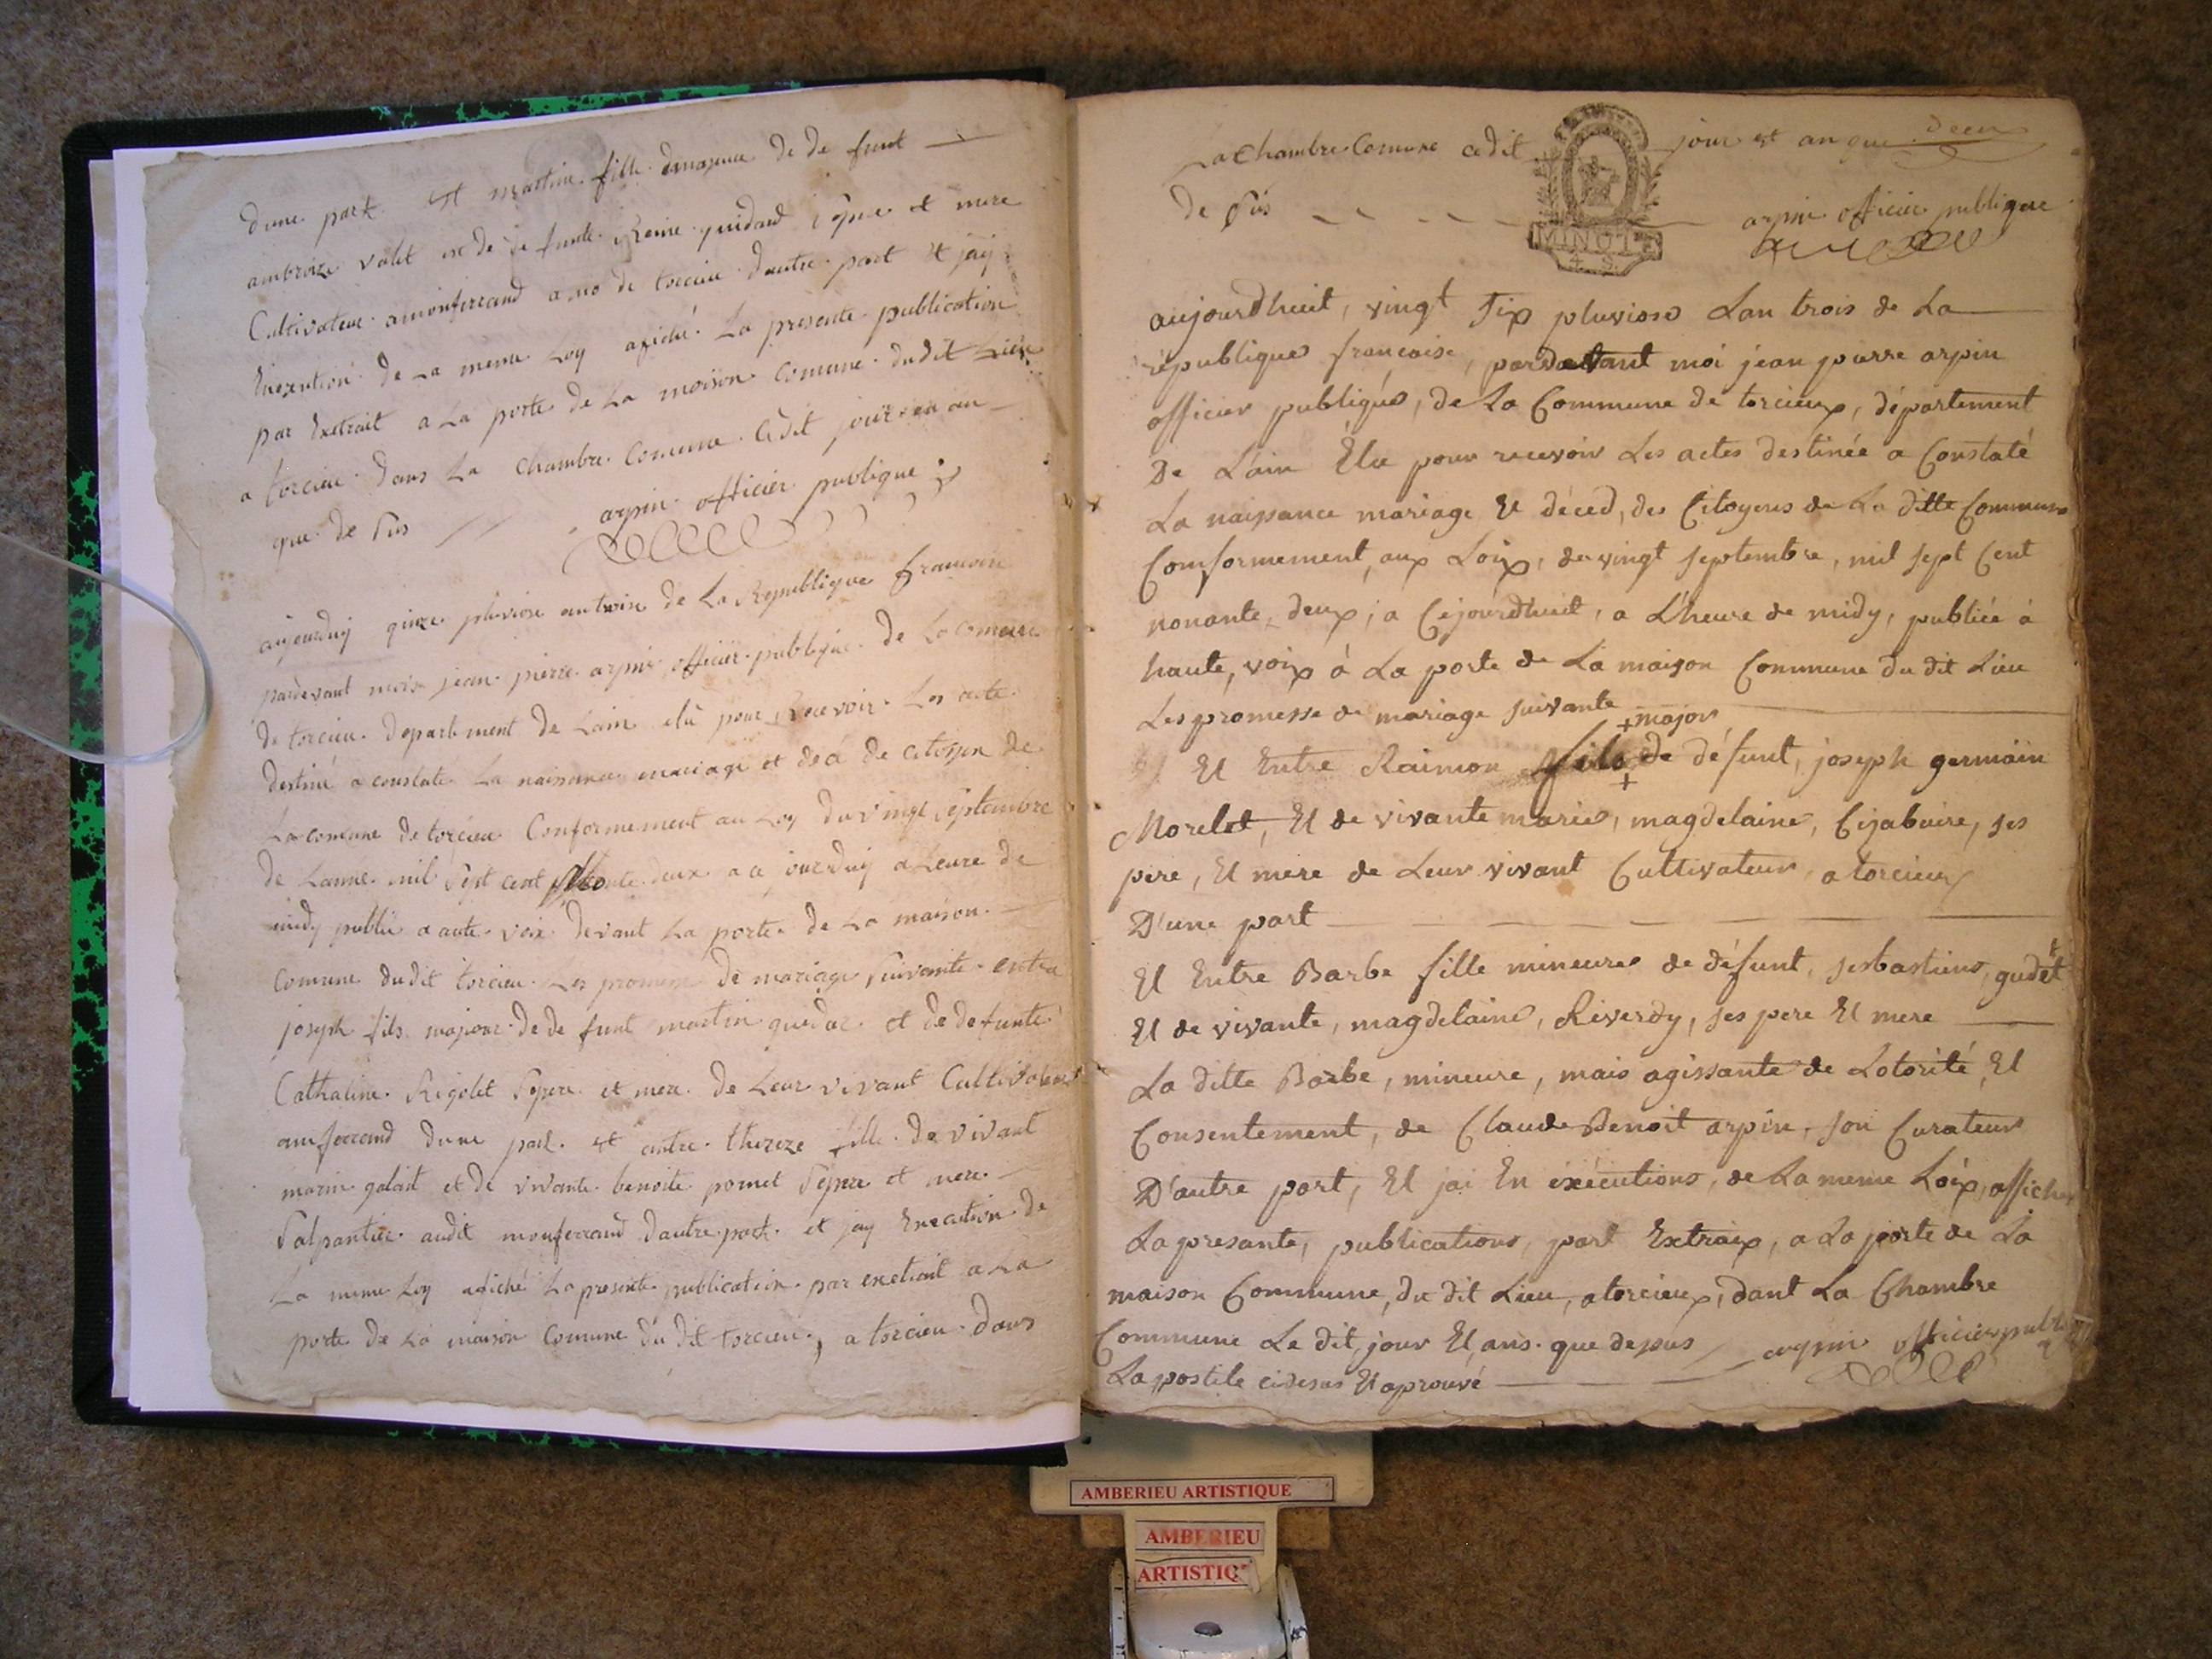 dune part et martine fille de de funt
ambroize valit et de de funte Reine guidard Spere et mere
Cultivateur a monferrand de torcieu dautre part et jay
Enexention de La meme Loy afiché La presente publication
par Extrait a La porte de La maison Comune dudit Lieu
a torcieu dans La Chambre Comune Cedit jour en an
que de Sus arpin officier publique
aujourduy quinze pluviose an troise de La Republique francoise
pardevant mois jean pierre arpin officier publique de La comune
de torcieu Department de Lain elû pour Recevoir Les acte
destiné a constaté La naissance mariage et decé de citoyen de
La comune de torcieu Conformement au Loy du vingt Septembre
de Lanné mil Sept cent deux a ce jourduy a Leure de
midy publié a aute voix devant La porte de La maison
Comune dudit torcieu Les promesse de mariage Suivante entre
joseph fils majour de de funt martin guidar et de defunte
Cathaline Rigolet Sepere et mere de Leur vivant Cultivateur
dune part et entre thereze fille de vivant
marin galait et de vivante benoite pomet Sepere et mere
Salpantier audit monferrand dautre part et jay Enexcution de
La meme Loy afiché La presente publication par extrait a La
porte de La maison Comune du dit torcieu, a torcieu dans
La Chambre Comune cedit jour et an que decu
de Sus arpin officier publique
MINUT
aujourdhuit, vingt Six pluviose Lan trois de La
république francoise, pardevant moi jean pierre arpin
officier publique, de La Commune de torcieux, département
De Lain Élu pour recevoir Les actes destinée a Constaté
La naissance mariage Et déced, des Citoyens de La ditte Commune
Conformement, aux Loix, de vingt septembre, mil sept Cent
nonante deux, a Cejourdhuit, a Lheure de midy, publiée à
haute, voix à La porte de La maison Commune du dit Lieu
Les promesse de mariage suivante
+ major
Et Entre Raimon fils + de défunt, joseph germain
Morelet, Et de vivante marie, magdelaine, Cizabuire, ses
pere, Et mere de Leur vivant Cultivateur, a torcieux
D'une part
Et Entre Barbe fille mineure de défunt, sesbastiens, gudet
Et de vivante, magdelaine, Riverdy, ses pere Et mere
La ditte Barbe, mineure, mais agissante de Lotorité, Et
Consentement, de Claude Benoit arpin, son Curateur
D'autre part, Et jai En éxécutions, de La meme Loix, afficher
La presante, publications, part Extraix, a La porte de La
maison Commune, du dit Lieu, a torcieux, dant La Chambre
Commune Le dit, jour Et, ans. que dessus arpin officier public
La postile cidesus Et aprouvé
AMBERIEU ARTISTIQUE
AMBERIEU
ARTISTIQ